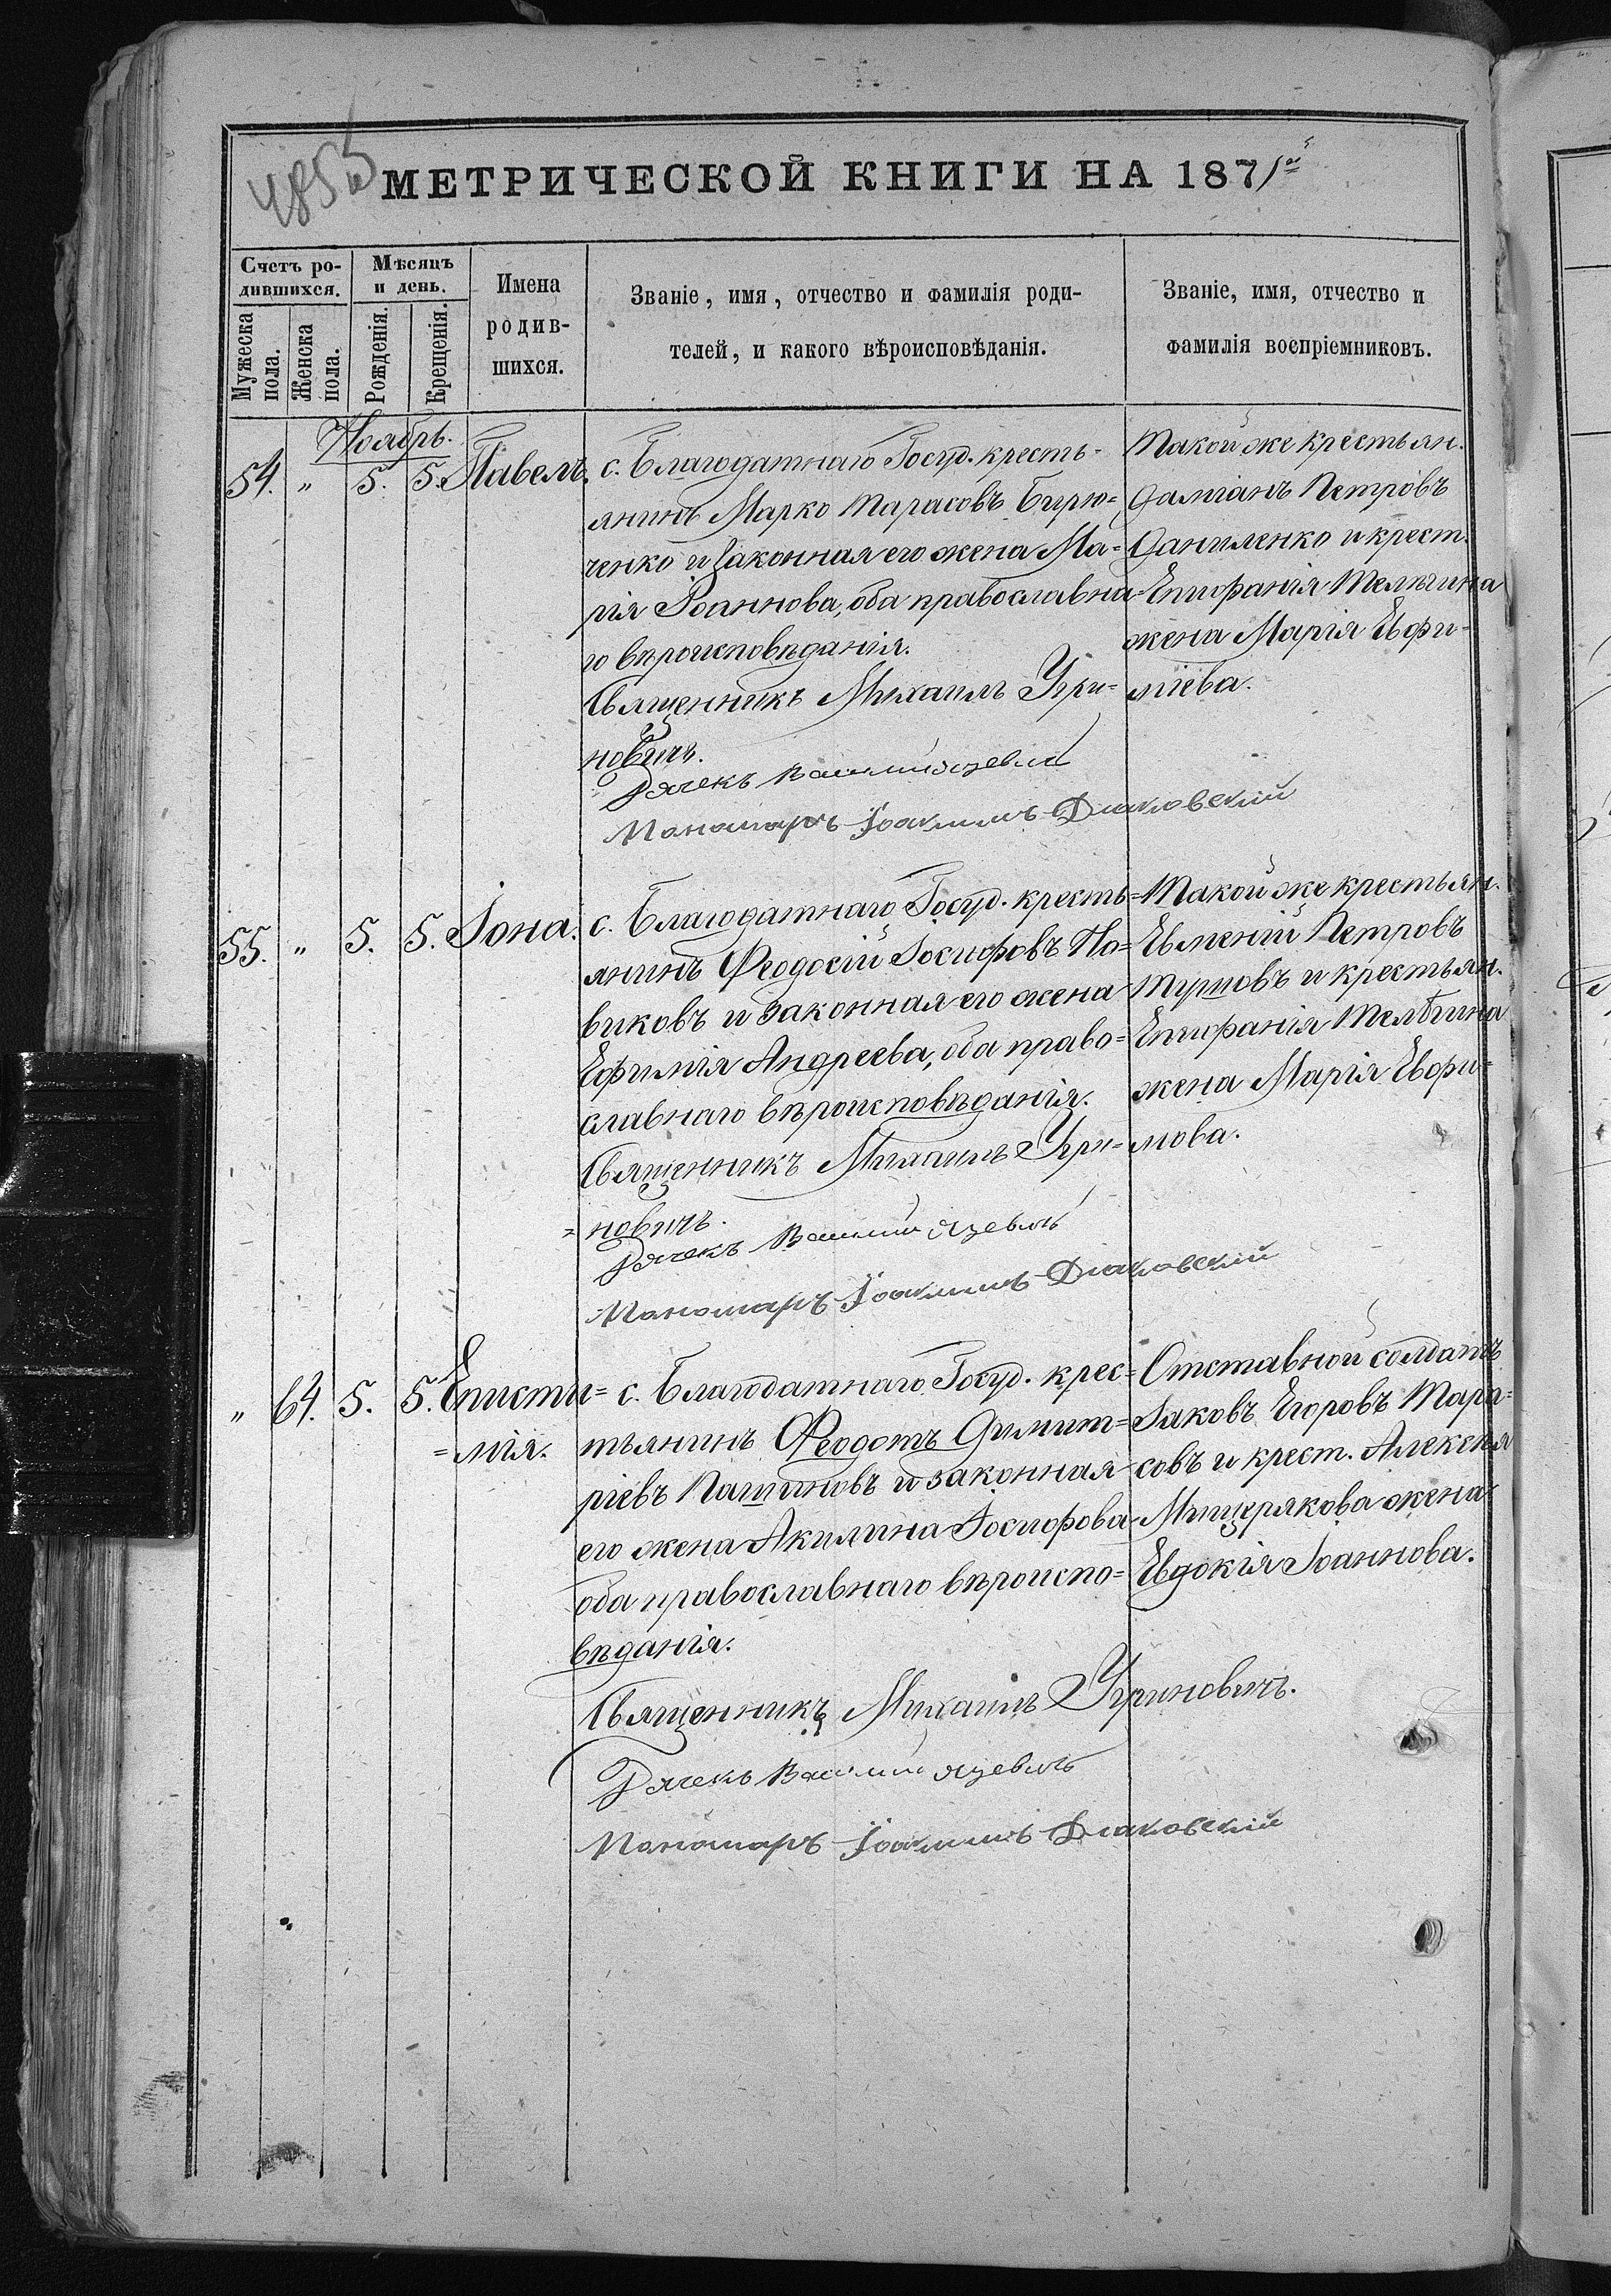 485
МЕТРИЧЕСКОЙ КНИГИ НА 1871
Счетъ ро-
дившихся.
Мѣсяцъ
и день.
Мужеска
пола.
Женска
пола.
Рожденія.
Крещенія.
Имена
родив-
шихся.
Званіе, имя, отчество и фамилія роди-
телей, и какого вѣроисповѣданія.
Званіе, имя, отчество и
фамилія воспріемниковъ.
Ноябрь.
54. " 5. 5. Павелъ.
с. Благодатнаго Госуд. кресть=
янинъ Марко Тарасовъ Бирю=
ченко и законная его жена Ма=
рія Іоаннова, оба православна
го вѣроисповѣданія.
Священникъ Михаилъ Угри=
новичъ.
Дячекъ Василій Язевичъ
Пономарь Іоакимъ Діаковскій
Такой же крестьян.
Даміанъ Петровъ
Даниленко и крест.
Епифанія Тельгина
жена Марія Евфи=
міева.
55. " 5. 5. Іона.
с. Благодатнаго Госуд. кресть=
янинъ Феодосій Іосифовъ Но=
виковъ и законная его жена
Ефимія Андреева, оба право=
славнаго вѣроисповѣданія.
Священникъ Михаилъ Угри=
=новичъ.
Дячекъ Василій Язевичъ
Пономарь Іоакимъ Діаковскій
Такой же крестьян.
Евменій Петровъ
и крестьян.
Епифанія Тельгина
жена Марія Евфи=
мова.
" 64. 5. 5. Еписти=
=мія.
с. Благодатнаго Госуд. крес=
тьянинъ Феодотъ Димит=
ріевъ Пашиновъ и законная
его жена Акилина Іосифова
оба православнаго вѣроиспо=
вѣданія.
Священникъ Михаилъ Угриновичъ.
Дячекъ Василій Язевичъ
Пономарь Іоакимъ Діаковскій
Отставной солдатъ
Іаковъ Егоровъ Тара=
совъ и крест. Алексѣя
Мищерякова жена
Евдокія Іоаннова.